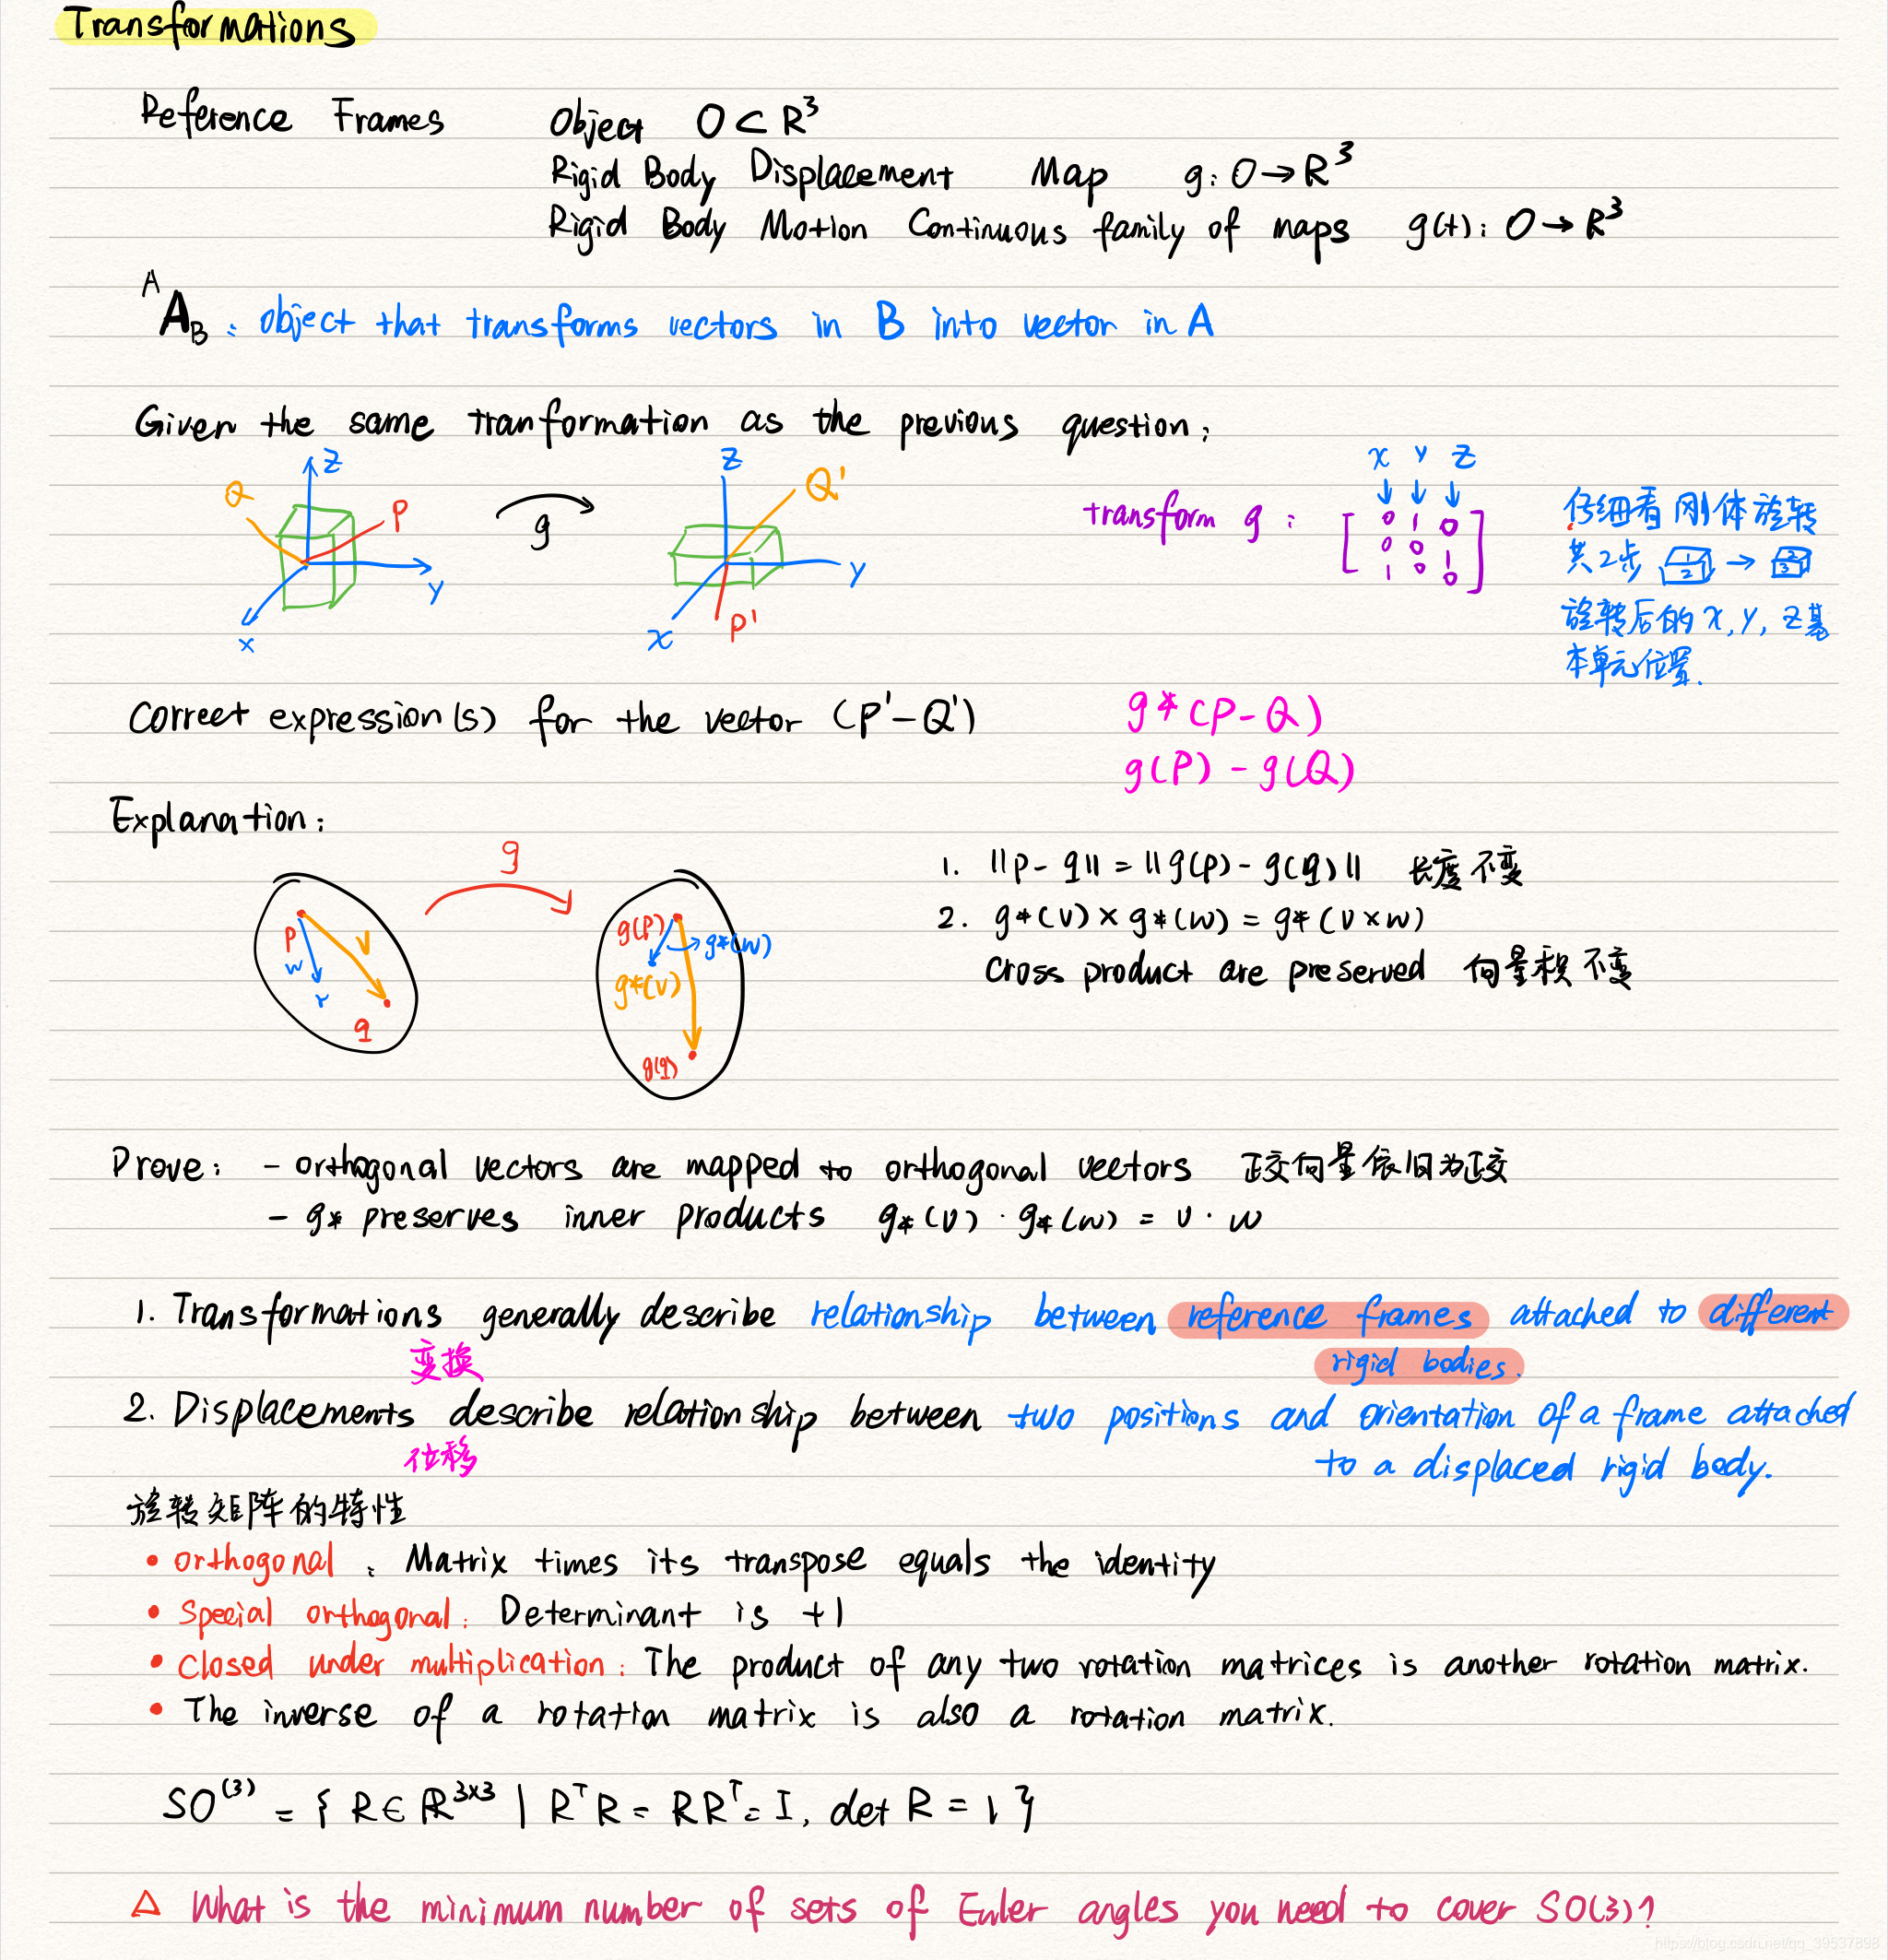 Transformations
Reference Frames Object O ⊂ R³
Rigid Body Displacement Map g: O → R³
Rigid Body Motion Continuous family of maps g(t): O → R³
ᴬA_B: object that transforms vectors in B into vector in A
Given the same tranformation as the previous question:
Q Z P Y X
g
Z Q' Y X P'
transform g:
X Y Z
↓ ↓ ↓
0 1 0
0 0 1
1 0 0
仔细看刚体旋转
共2步 1 2 → 2 3
旋转后的 x, y, z 基
本单元位置.
Correct expression(s) for the vector (P'-Q')
g*(P-Q)
g(P) - g(Q)
Explanation:
g
P V w r q
g(P) g*(w) g*(v) g(q)
1. ||p - q|| = ||g(p) - g(q)|| 长度不变
2. g*(v) × g*(w) = g*(v×w)
Cross product are preserved 向量积不变
Prove: - orthogonal vectors are mapped to orthogonal vectors 正交向量依旧为正交
- g* preserves inner products g*(v) · g*(w) = v · w
1. Transformations generally describe relationship between reference frames attached to different
变换 rigid bodies.
2. Displacements describe relationship between two positions and orientation of a frame attached
位移 to a displaced rigid body.
旋转矩阵的特性
• orthogonal: Matrix times its transpose equals the identity
• Special orthogonal: Determinant is +1
• Closed under multiplication: The product of any two rotation matrices is another rotation matrix.
• The inverse of a rotation matrix is also a rotation matrix.
SO⁽³⁾ = { R ∈ ℝ³ˣ³ | RᵀR = RRᵀ = I, det R = 1 }
△ What is the minimum number of sets of Euler angles you need to cover SO(3)?
https://blog.csdn.net/qq_39537898